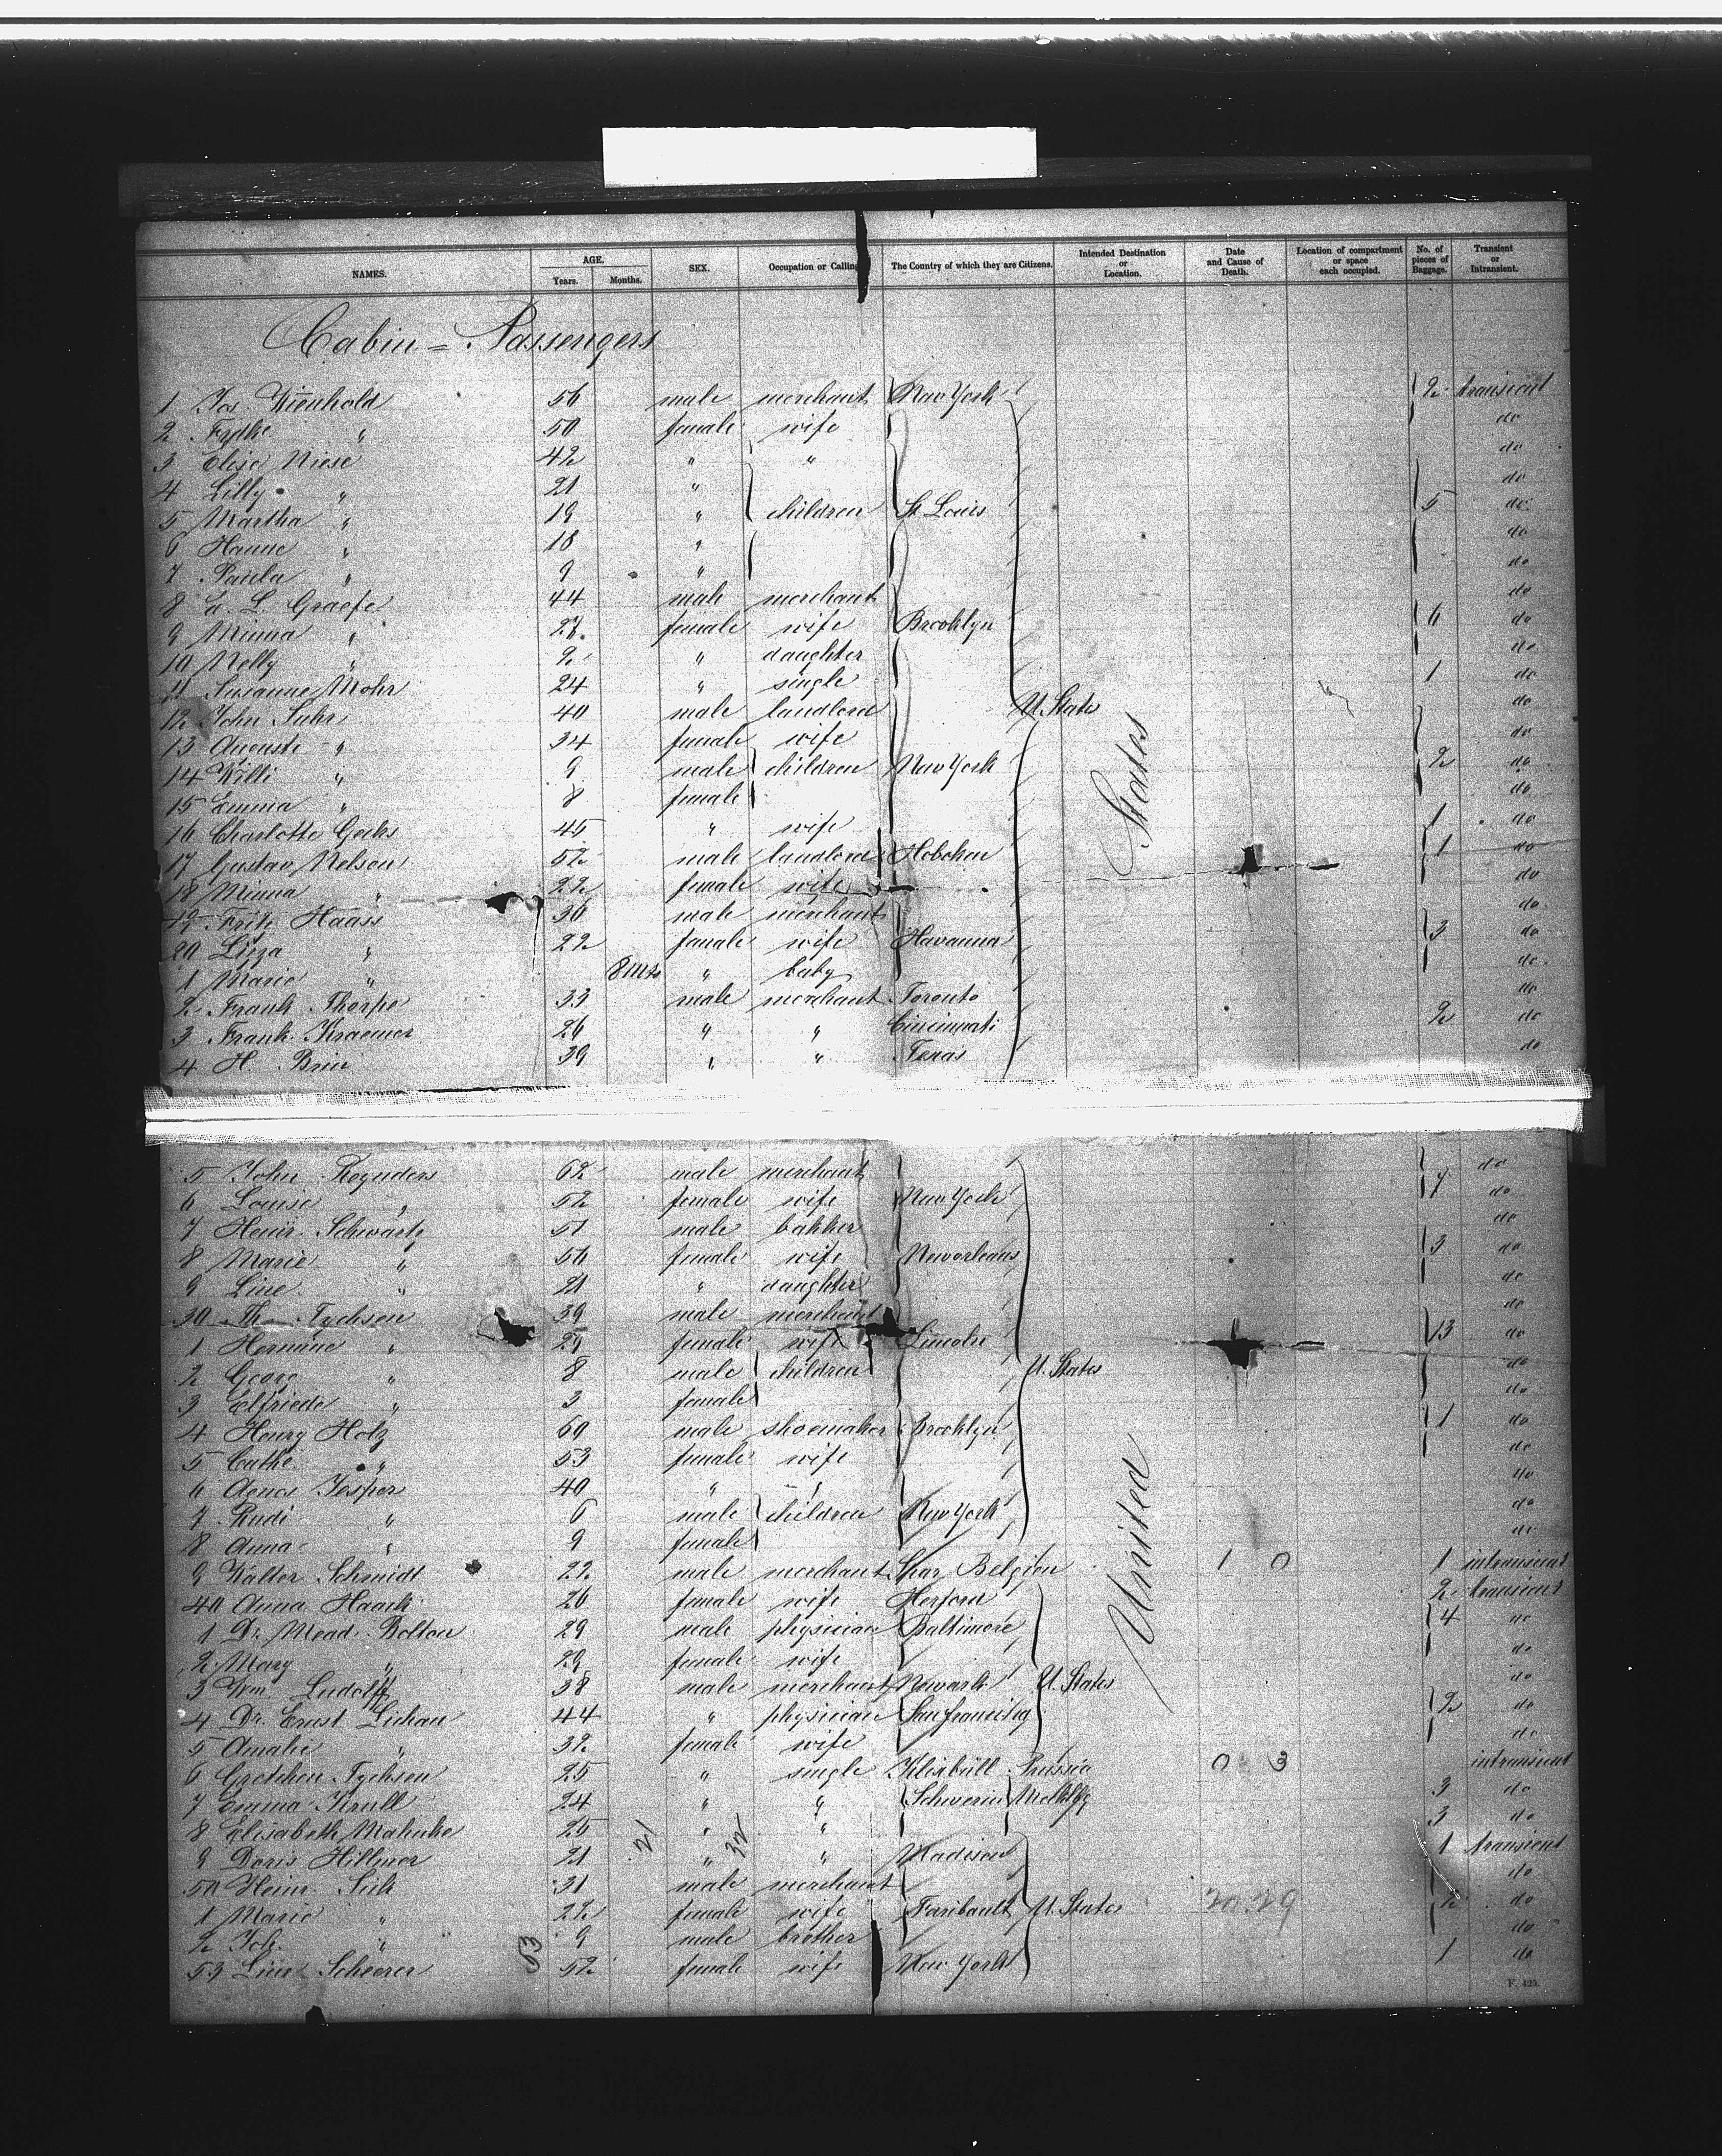 NAMES. AGE. Years. Months. SEX. Occupation or Calling The Country of which they are Citizens. Intended Destination or Location. Date and Cause of Death. Location of compartment or space each occupied. No. of pieces of Baggage. Transient or Intransient.
Cabin = Passengers
1 Jos. Wienhold 56 male merchant New York 2 transient
2 Frdke " 50 female wife do
3 Elise Niese 42 " " do
4 Lilly " 21 " do
5 Martha " 19 " children St Louis 5 do
6 Hanne " 18 " do
7 Paula " 9 " do
8 L. Graefe 44 male merchant do
9 Minna " 27 female wife Brooklyn 6 do
10 Nelly " 2 " daughter do
11 Susanne Mohr 24 " single 1 do
12 John Suhr 40 male landlord U. States do
13 Auguste " 34 female wife do
14 Willi " 9 male children New York 2 do
15 Emma " 8 female do
16 Charlotte Geeks 45 " wife 1 do
17 Gustav Nelson 52 male landlord Hoboken 1 do
18 Minna " 22 female wife do
19 Fritz Haass 30 male merchant do
20 Lizza " 22 female wife Havanna 3 do
1 Marie " 8 mts " baby do
2 Frank Thorpe 33 male merchant Toronto do
3 Frank Kraemer 26 " " Cincinnati 2 do
4 H. Brin 39 " " Texas do
States
5 John Reynders 62 male merchant do
6 Louise " 52 female wife New York 7 do
7 Heinr. Schwartz 51 male bakker do
8 Marie " 56 female wife Neworleans 3 do
9 Line " 21 " daughter do
30 Th. Tychsen 39 male merchant do
1 Hermine " 29 female wife Lincoln 13 do
2 Georg " 8 male children U. States do
3 Elfriede " 3 female do
4 Henry Holz 60 male shoemaker Brooklyn 1 do
5 Cathe " 53 female wife do
6 Agnes Jesper 40 " " do
7 Rudi " 6 male children New York do
8 Anna " 9 female do
9 Walter Schmidt 22 male merchant Spaz Belgien 1 0 1 intransient
40 Anna Haack 26 female wife Herford 2 transient
1 Dr. Mead Bolton 29 male physician Baltimore 4 do
2 Mary " 29 female wife do
3 Wm. Ludolff 38 male merchant Newark U. States do
4 Dr. Ernst Lichau 44 " physician San francisco 2 do
5 Amalie " 32 female wife do
6 Gretchen Tychsen 25 " single Klixbüll Prussia 0 3 intransient
7 Emma Krull 24 " " Schwerin Meklbg 3 do
8 Elisabeth Mahncke 25 " " 3 do
9 Doris Hillmer 21 " " Madison 1 transient
21 32
50 Heinr. Sick 31 male merchant do
1 Marie " 22 female wife Faribault U. States 20.29 2 do
2 Joh. " 9 male brother do
53 Line Scheerer 53 52 female wife New York 1 do
United
F. 425.